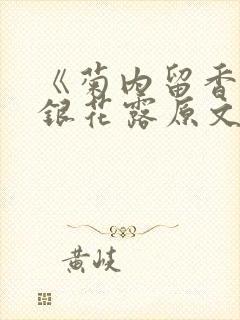 《菊内留香
银花露原文
黄岐